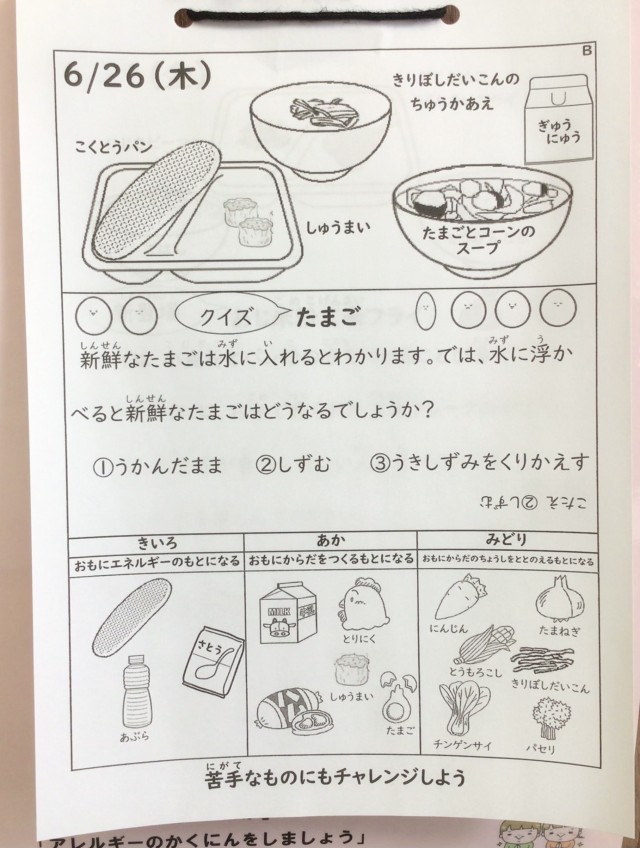 B
6/26(木)
きりぼしだいこんの
ちゅうかあえ
ぎゅう
にゅう
こくとうパン
しゅうまい
たまごとコーンの
スープ
クイズ たまご
新鮮なたまごは水に入れるとわかります。では、水に浮か
べると新鮮なたまごはどうなるでしょうか？
①うかんだまま ②しずむ ③うきしずみをくりかえす
こたえ ②しずむ
きいろ
おもにエネルギーのもとになる
さとう
あぶら
あか
おもにからだをつくるもとになる
MILK
とりにく
しゅうまい
たまご
みどり
おもにからだのちょうしをととのえるもとになる
にんじん
たまねぎ
とうもろこし
きりぼしだいこん
チンゲンサイ
パセリ
苦手なものにもチャレンジしよう
「アレルギーのかくにんをしましょう」